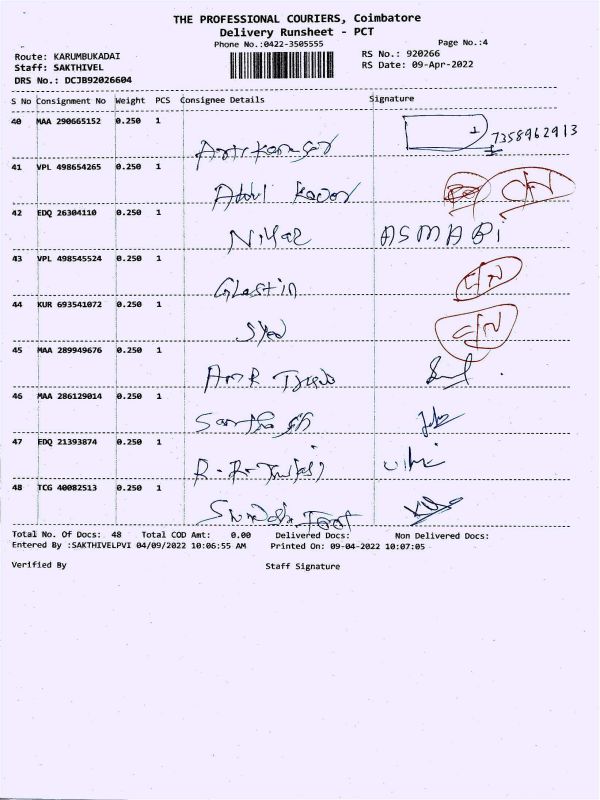 THE PROFESSIONAL COURIERS, Coimbatore
Delivery Runsheet - PCT
Phone No.:0422-3505555
Page No.:4
Route: KARUMBUKADAI
RS No.: 920266
Staff: SAKTHIVEL
RS Date: 09-Apr-2022
DRS No.: DCJB92026604
S No Consignment No Weight PCS Consignee Details Signature
40 MAA 290665152 0.250 1
7358962913
41 VPL 498654265 0.250 1
Abdul
42 EDQ 26304110 0.250 1
ASMABI
43 VPL 498545524 0.250 1
Glastin
44 KUR 693541072 0.250 1
Syed
45 MAA 289949676 0.250 1
46 MAA 286129014 0.250 1
47 EDQ 21393874 0.250 1
48 TCG 40082513 0.250 1
Total No. Of Docs: 48 Total COD Amt: 0.00 Delivered Docs: Non Delivered Docs:
Entered By :SAKTHIVELPVI 04/09/2022 10:06:55 AM Printed On: 09-04-2022 10:07:05
Verified By Staff Signature